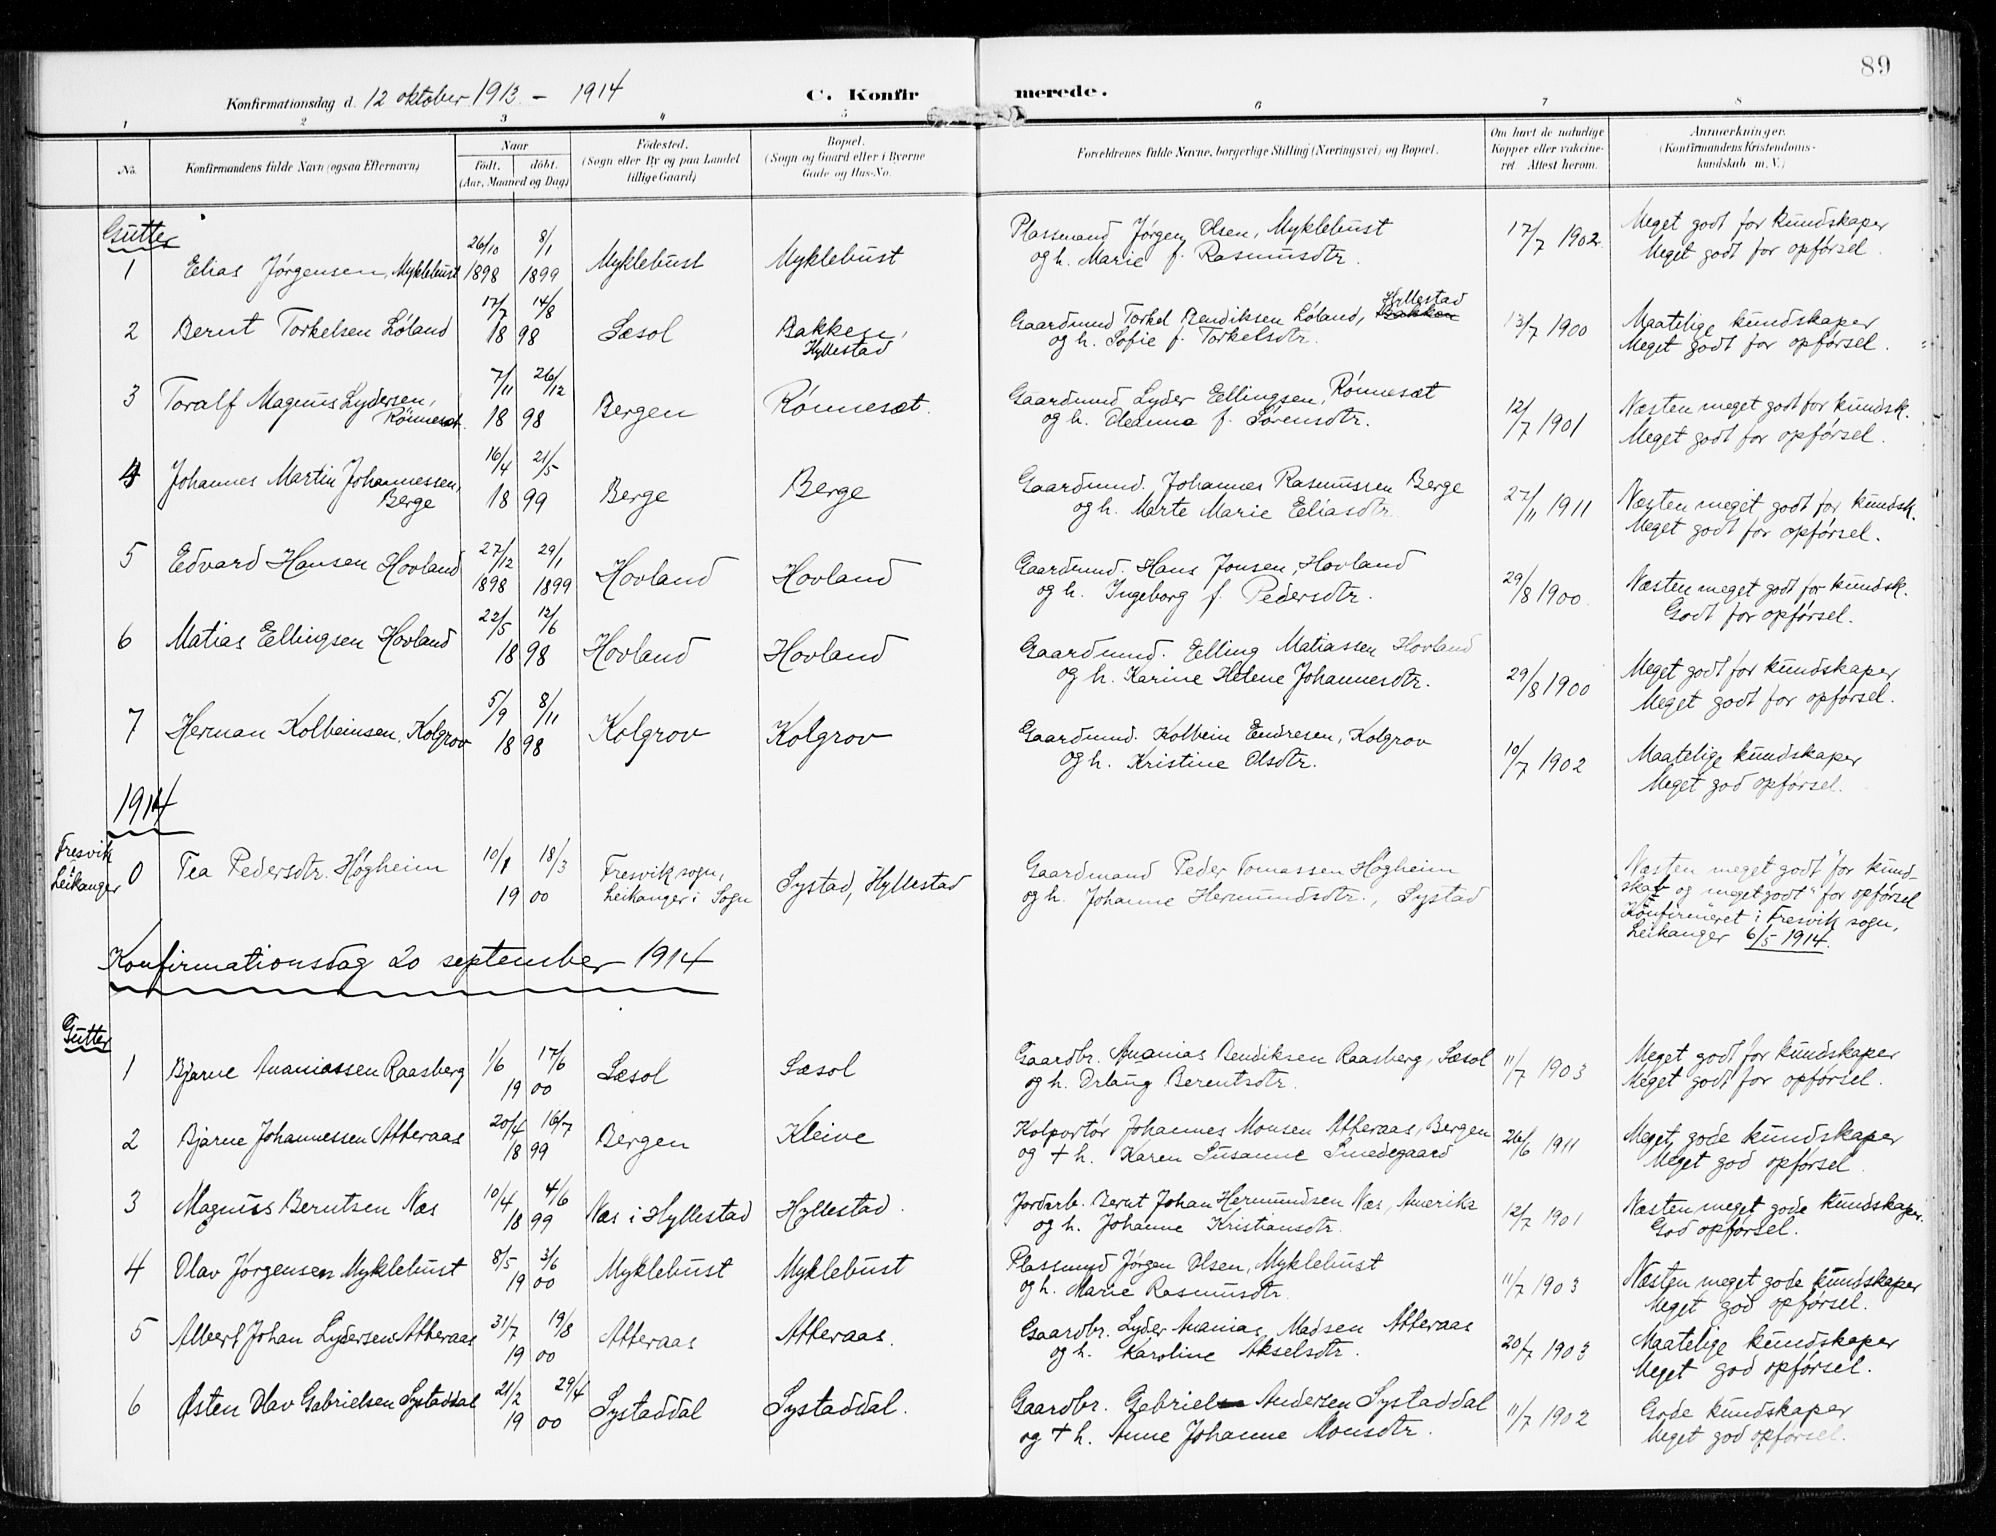 89
Konfirmationsdag d. 12 oktober 1913 - 1914 C. Konfirmerede.
1 2 3 4 5 6 7 8
No. Konfirmandens fulde Navn (ogsaa Efternavn) Naar født. døbt. (Aar, Maaned og Dag) Fødested. (Sogn eller By og paa Landet tillige Gaard) Bopæl. (Sogn og Gaard eller i Byerne Gade og Hus-No. Forældrenes fulde Navne, borgerlige Stilling (Næringsvei) og Bopæl. Om havt de naturlige Kopper eller vaccineret Attest herom. Anmærkninger. (Konfirmandens Kristendomskundskab m. V.)
Gutter
1 Elias Jørgensen, Myklebust 26/10 1898 8/1 1899 Myklebust Myklebust Plassmand Jørgen Olsen, Myklebust 17/7 1902 Meget godt for kundskaper
og h. Marie f. Rasmusdtr. Meget godt for opførsel.
2 Bernt Torkelsen Løland 17/7 14/8 1898 Sæsol Bakken, Hyllestad Gaardmand Torkel Bendiksen Løland, Bakken Hyllestad 13/7 1900 Maatelige kundskaper
og h. Sofie f. Torkelsdtr. Meget godt for opførsel.
3 Toralf Magnus Lydersen, Rønneset. 7/11 26/12 1898 Bergen Rønnesæt. Gaardmand Lyder Ellingsen, Rønnesæt 12/7 1901 Næsten meget godt for kundsk.
og h. Oleanna f. Sørensdtr. Meget godt for opførsel.
4 Johannes Martin Johannessen, Berge 16/4 21/5 1899 Berge Berge Gaardmand. Johannes Rasmussen Berge 27/11 1911 Næsten meget godt for kundsk.
og h. Marte Marie Eliasdtr. Meget godt for opførsel.
5 Edvard Hansen Hovland 27/12 1898 29/1 1899 Hovland Hovland Gaardmand. Hans Jonsen, Hovland 29/8 1900. Næsten meget godt for kundsk.
og h. Ingeborg f. Pedersdtr. Godt for opførsel.
6 Matias Ellingsen Hovland 22/5 12/6 1898 Hovland Hovland Gaardmand. Elling Matiassen Hovland 29/8 1900 Meget godt for kundskaper
og h. Karine Helene Johannesdtr. Meget godt for opførsel.
7 Herman Kolbeinsen, Kolgrov 5/9 8/11 1898 Kolgrov Kolgrov Gaardmand. Kolbein Endresen, Kolgrov 10/7 1902 Maatelige kundskaper
og h. Kristine Olsdtr. Meget god opførsel.
1914
Fresvik Leikanger 0 Tea Pedersdtr. Høgheim 10/1 18/3 1900 Fresvik sogn, Leikanger i Sogn Systad, Hyllestad Gaardmand Peder Tomassen Høgheim „Næsten meget godt" for kund-
og h. Johanne Hermundsdtr., Systad skab og meget godt" for opførsel
Konfirmeret i Fresvik sogn,
Leikanger 6/5 1914.
Konfirmationsdag 20 september 1914
Gutter
1 Bjarne Ananiassen Raasberg 1/6 17/6 1900 Sæsol Sæsol Gaardbr. Ananias Bendiksen Raasberg, Sæsol 11/7 1903 Meget godt for kundskaper
og h. Orlaug Berentsdtr. Meget godt for opførsel.
2 Bjarne Johannessen Atteraas 20/4 16/7 1899 Bergen Kleive Kolportør Johannes Monsen Atteraas, Bergen 26/6 1911 Meget gode kundskaper
og + h. Karen Susanne Smedegaard Meget god opførsel.
3 Magnus Berntsen Næs 10/4 4/6 1899 Næs i Hyllestad Hyllestad. Jordarb. Bernt Johan Hermundsen Næs, Amerika 12/7 1901 Næsten meget gode kundskaper.
og h. Johanne Kristiansdtr. God opførsel.
4 Olav Jørgensen Myklebust 8/5 3/6 1900 Myklebust Myklebust Plassmand Jørgen Olsen, Myklebust 11/7 1903 Næsten meget gode kundskaper
og h. Marie Rasmusdtr. Meget god opførsel.
5 Albert Johan Lydersen Atteraas 31/7 19/8 1900 Atteraas Atteraas. Gaardbr. Lyder Ananias Madsen Atteraas 20/7 1903 Maatelige kundskaper
og h. Karoline Akselsdtr. Meget god opførsel.
6 Østen Olav Gabrielsen Systaddal 21/2 29/4 1900 Systaddal Systaddal. Gaardbr. Gabriel Andersen Systaddal 11/7 1902 Gode kundskaper
og + h. Anne Johanne Monsdtr. Meget god opførsel.